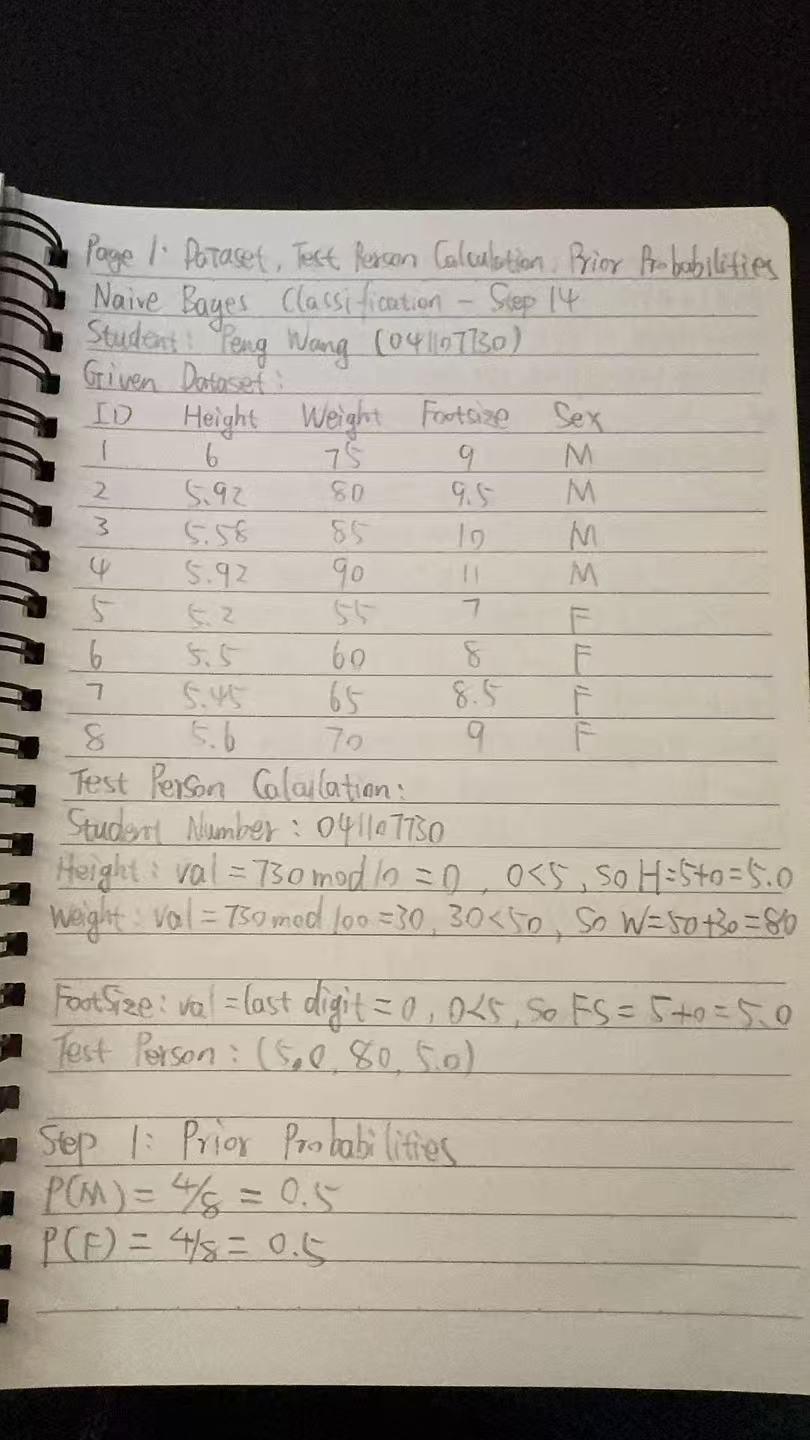 Page 1: Dataset, Test Person Calculation, Prior Probabilities
Naive Bayes Classification - Step 14
Student: Peng Wang (041107730)
Given Dataset:
ID Height Weight Footsize Sex
1 6 75 9 M
2 5.92 80 9.5 M
3 5.58 85 10 M
4 5.92 90 11 M
5 5.2 55 7 F
6 5.5 60 8 F
7 5.45 65 8.5 F
8 5.6 70 9 F
Test Person Calculation:
Student Number: 041107730
Height: val = 730 mod 10 = 0, 0<5, so H=5+0=5.0
Weight: val = 730 mod 100 = 30, 30<50, so W=50+30=80
FootSize: val = last digit = 0, 0<5, so FS = 5+0 = 5.0
Test Person: (5.0, 80, 5.0)
Step 1: Prior Probabilities
P(M) = 4/8 = 0.5
P(F) = 4/8 = 0.5